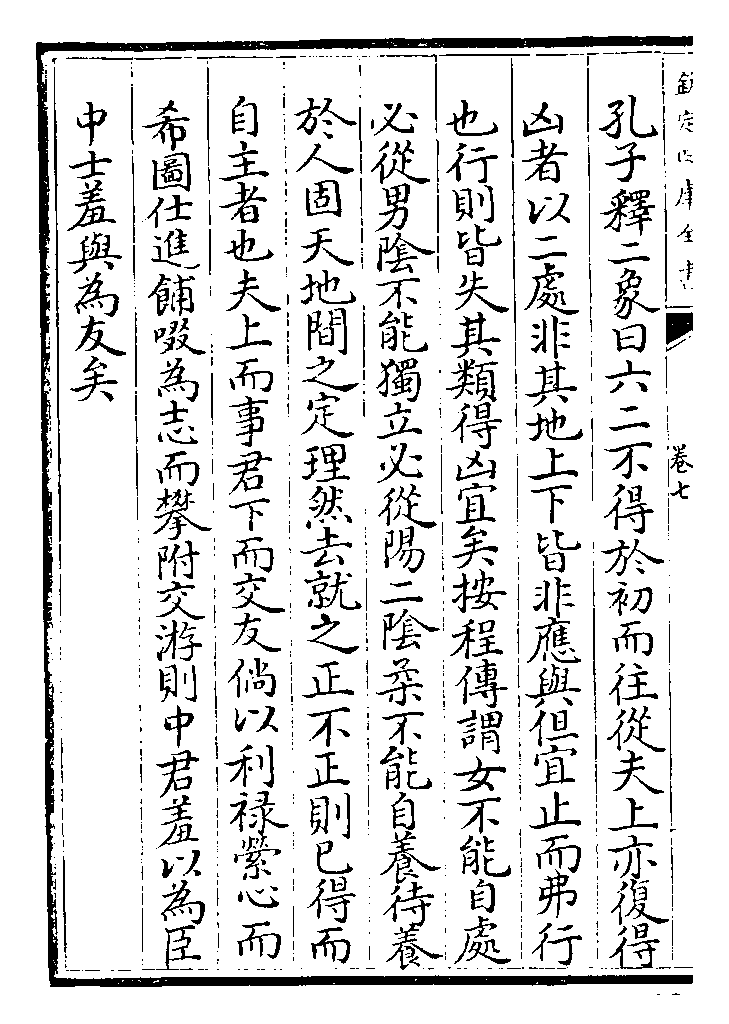 欽定四庫全書
卷七
孔子釋二象曰六二不得於初而往從夫上亦復得
凶者以二處非其地上下皆非應與但宜止而弗行
也行則皆失其類得凶宜矣按程傳謂女不能自處
必從男陰不能獨立必從陽二陰柔不能自養待養
於人固天地間之定理然去就之正不正則已得而
自主者也夫上而事君下而交友倘以利祿縈心而
希圖仕進餔啜為志而攀附交游則中君羞以為臣
中士羞與為友矣